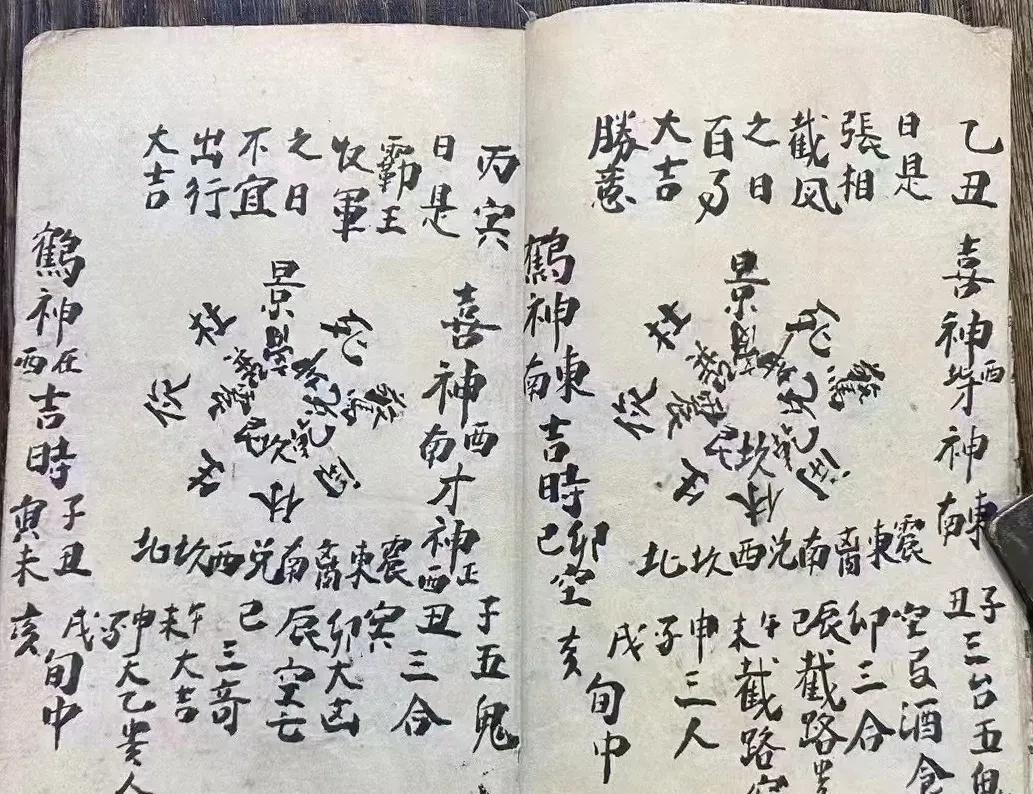 乙丑
日是
張相
截风
之日
百事
大吉
勝意
喜神西
才神東南
景
死
驚
開
休
生
伤
杜
坎
艮
震
兑
震東離南兑西坎北
鶴神東南
吉時卯巳空亥
子丑三台五鬼
卯三合
辰巳截路
午未截路空
申子三人
戌
旬中
丙寅
日是
霸王
收軍
之日
不宜
出行
大吉
喜神西南
才神正西
景
死
驚
開
休
生
伤
杜
坎
艮
震
兑
震東離南兑西坎北
鶴神在西
吉時子丑寅未亥
子五鬼
丑三合
寅
卯大凶
辰空亡
巳三奇
午未大吉
申
大乙贵人
戌
旬中